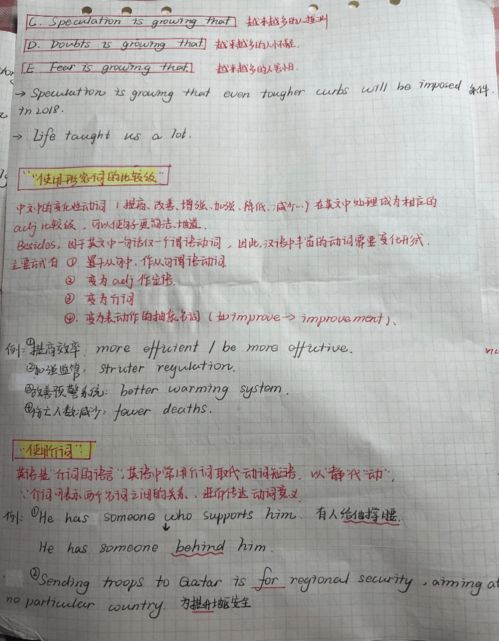 C. Speculation is growing that 越来越多的人猜测
D. Doubts is growing that 越来越多的人怀疑
E Fear is growing that 越来越多的人害怕
→ Speculation is growing that even tougher curbs will be imposed 条件.
in 2018.
→ Life taught us a lot.
"使用形容词的比较级"
中文中的变化性动词（提高、改善、增强、加强、降低、减少…）在英文中处理成为相应的
adj 比较级，可以使句子更简洁、地道.
Besides, 因于英文中一句话仅一个谓语动词，因此，汉语中丰富的动词需要变化形式.
主要方式有 ① 置于从句中，作从句谓语动词
② 变为 adj 作定语.
③ 变为介词
④. 变为表动作的抽象名词（如 improve → improvement）、
例: ①提高效率: more efficient / be more effictive.
②加强监管: struter regulation.
③改善预警系统: better warming system.
④伤亡人数减少: fewer deaths.
"使用介词":
英语是"介词的语言", 英语中常用介词取代动词短语, 以"静"代"动",
∵介词可表示两个名词之间的关系, 进而传达动词意义
例: ①He has someone who supports him. 有人给他撑腰.
He has someone behind him.
②Sending troops to Qatar is for regional security, aiming at
no particular country. 为提升地区安全